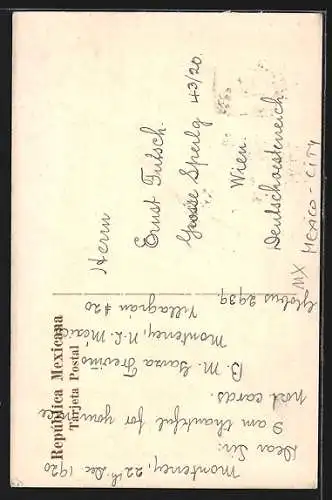 República Mexicana
Tarjeta Postal
Monterrey, 22th Dec 1920
Dear Sir:
I am thankful for your nice
post cards.
B. M. Garza Treviño
Monterrey, N. L. Méx.
Villagrán #20
Globus 2939.
Herrn
Ernst Futsch.
Grosse Sperlg 43/20.
Wien.
Deutschoesterreich
MX
MEXICO-CITY